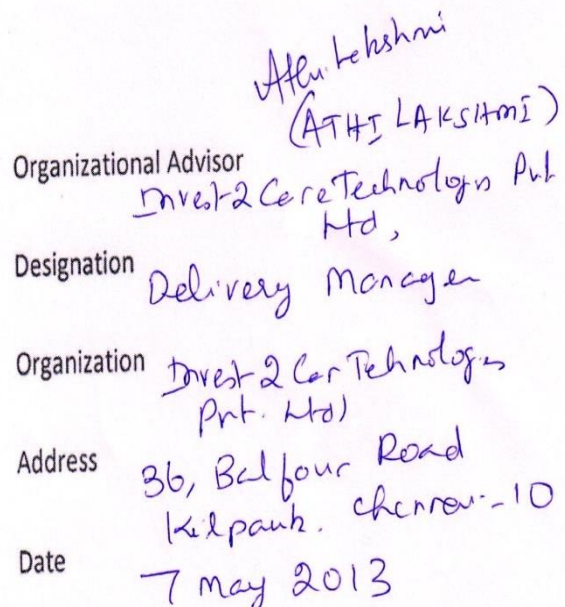 Athi Lekshmi
(ATHI LAKSHMI)
Organizational Advisor
Invest2Care Technologies Pvt
Ltd,
Designation Delivery Manager
Organization Invest2Care Technologies
Pvt. Ltd)
Address 36, Balfour Road
Kilpauk. Chennai-10
Date 7 May 2013